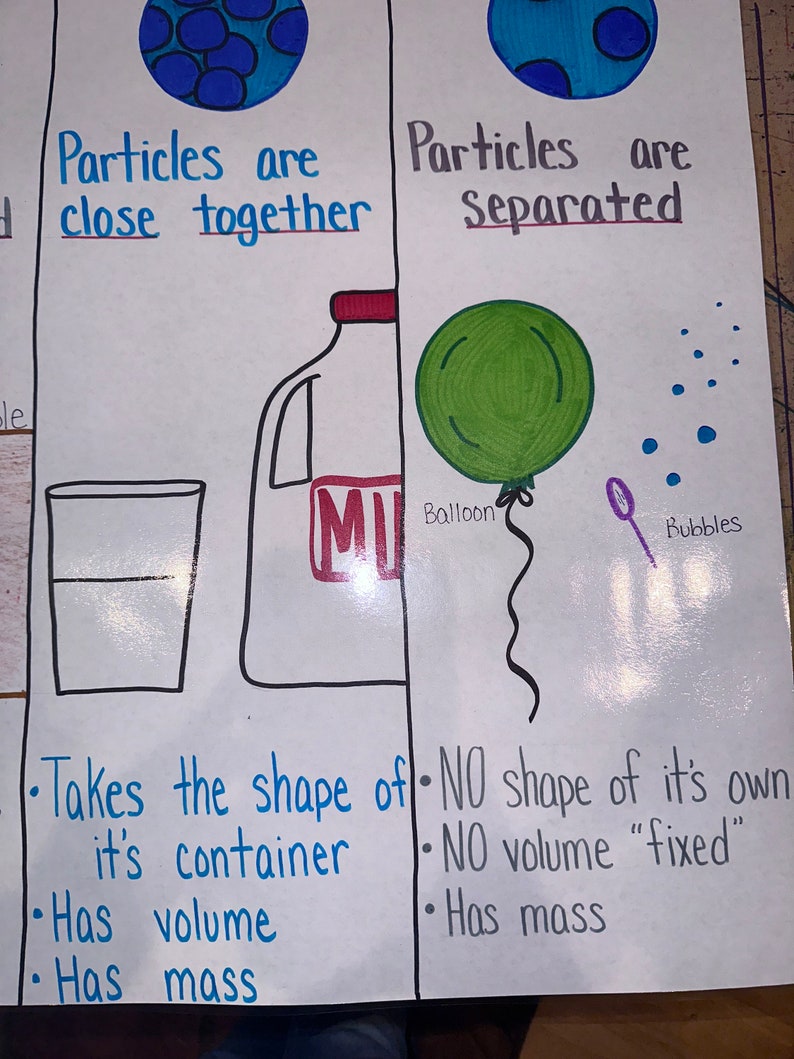 Particles are
close together
MI
Takes the shape of
it's container
• Has volume
• Has mass
Particles are
separated
Balloon
Bubbles
• NO shape of it's own
• NO volume "fixed"
• Has mass